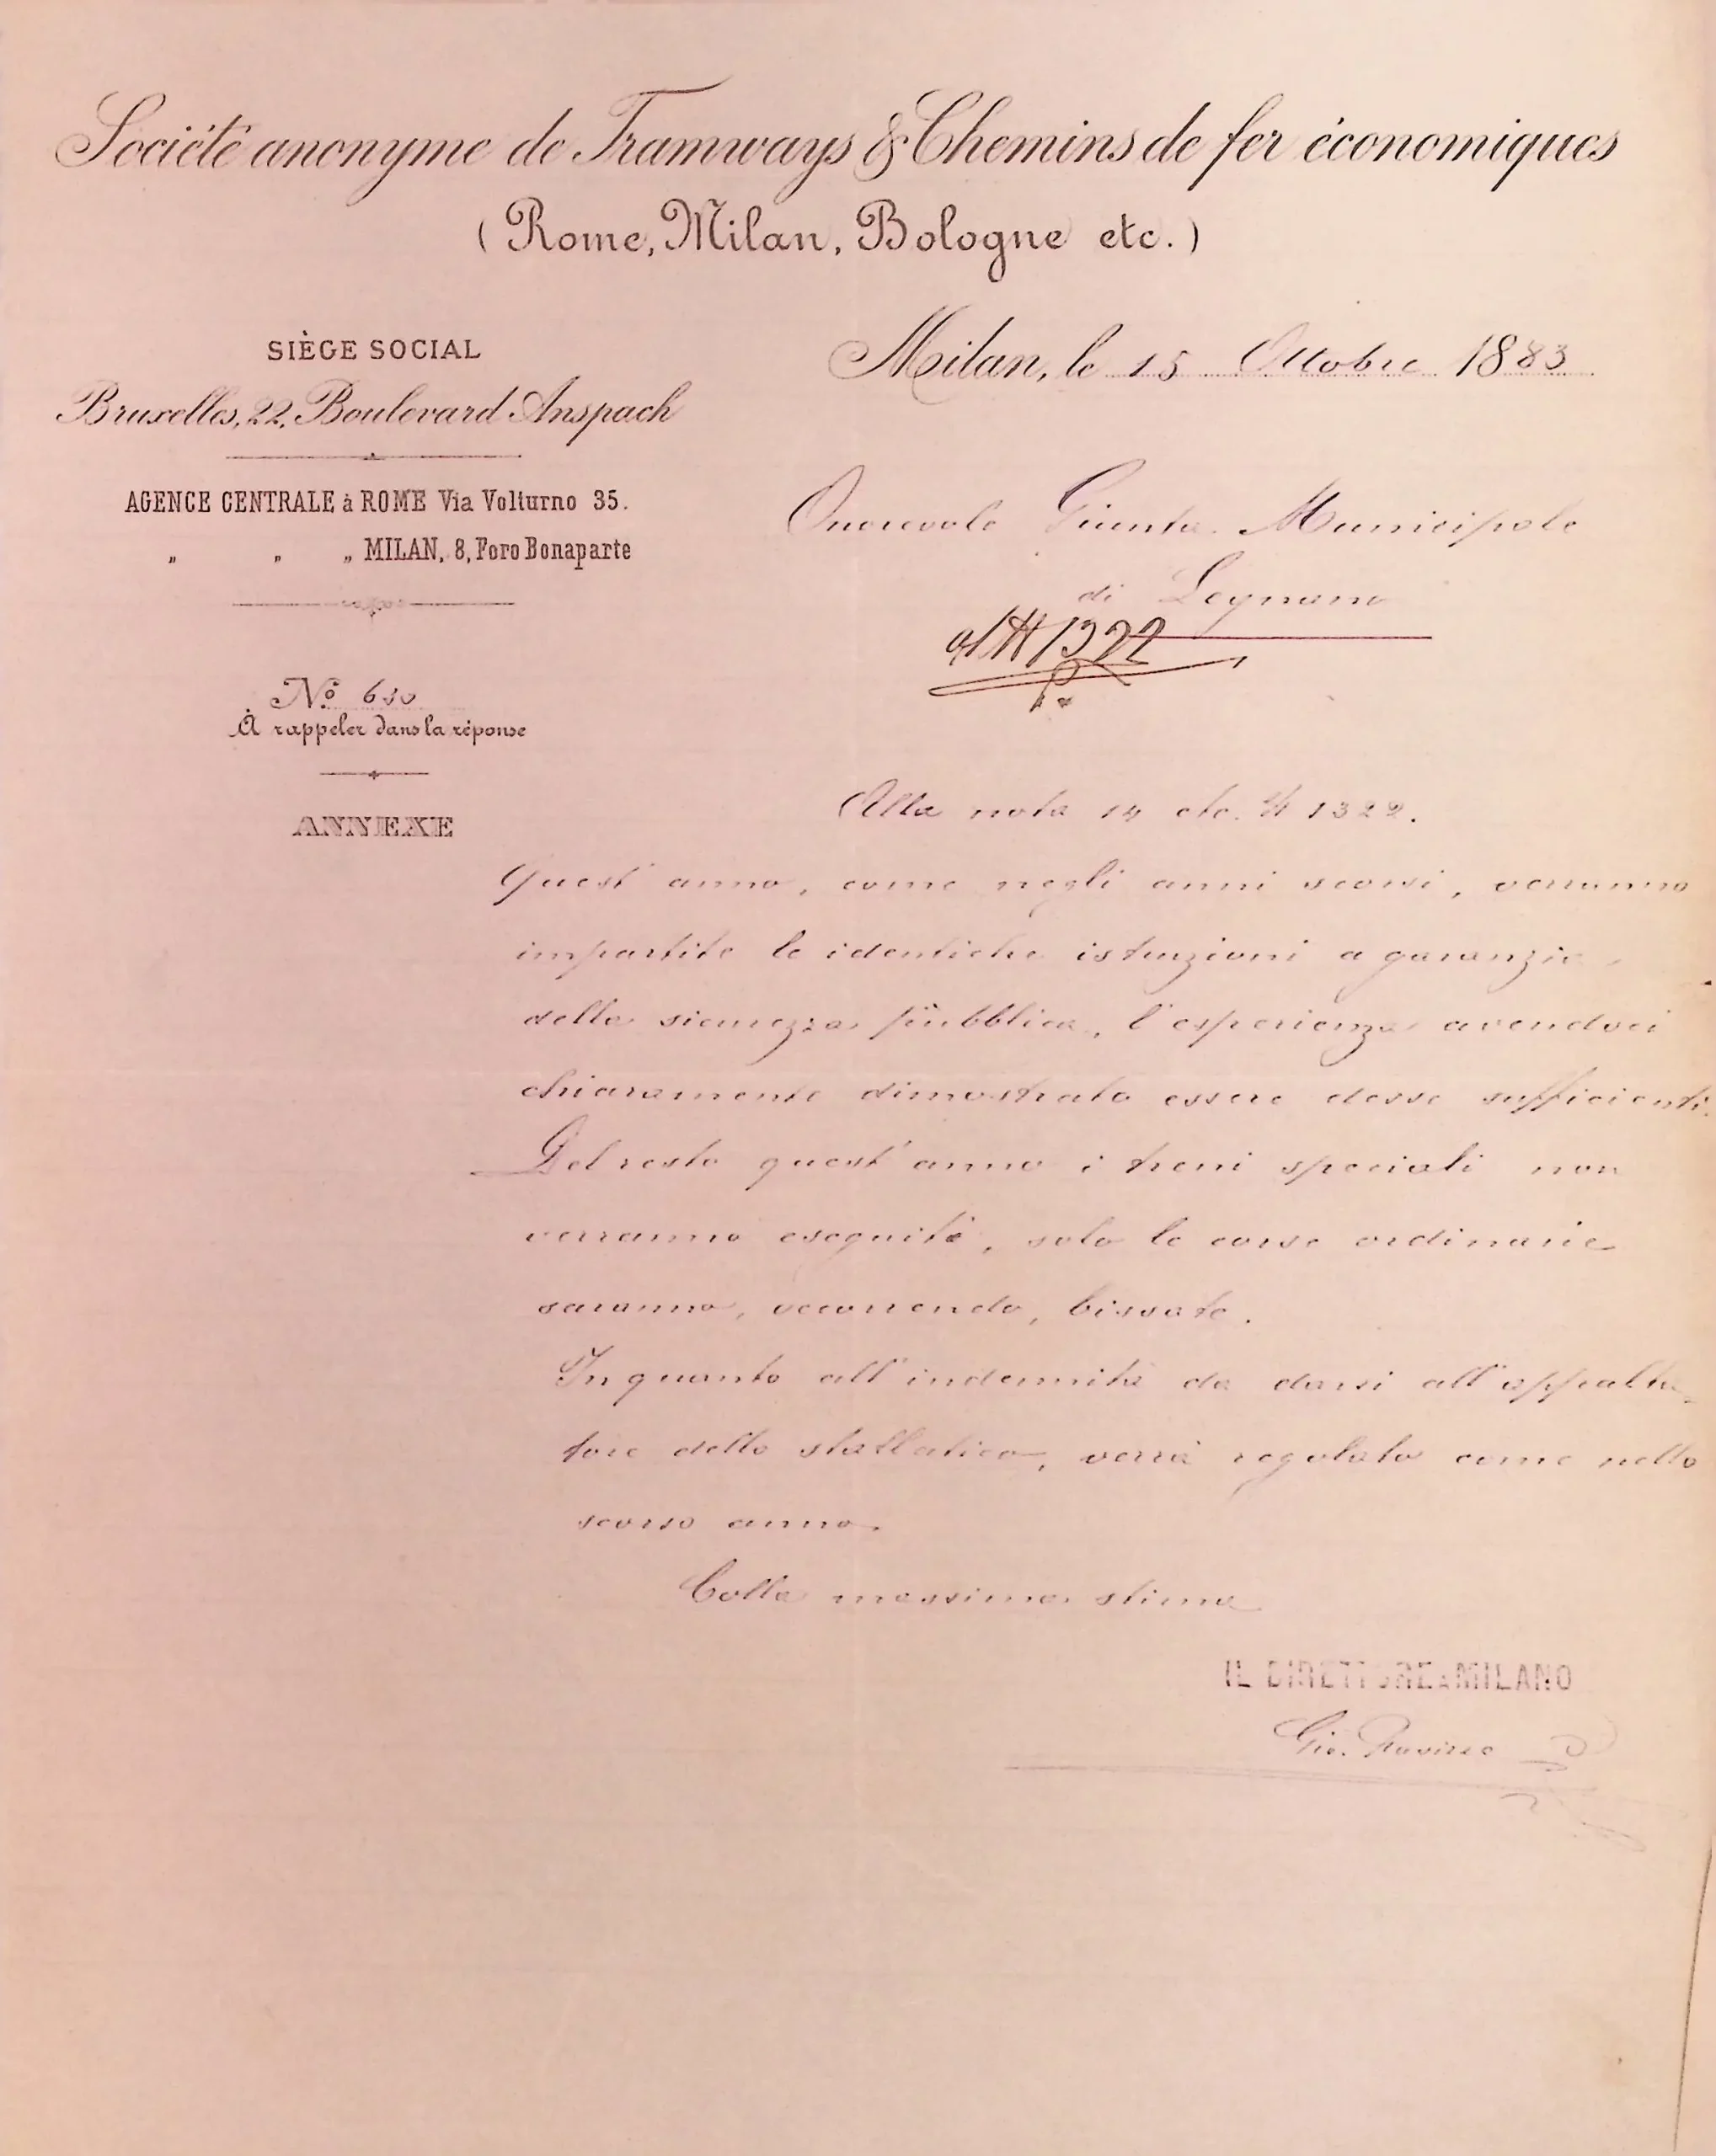 Société anonyme de Tramways & Chemins de fer économiques
(Rome, Milan, Bologne etc.)
SIÈGE SOCIAL
Bruxelles, 22, Boulevard Anspach
AGENCE CENTRALE à ROME Via Volturno 35.
„ „ „ MILAN, 8, Foro Bonaparte
Nº 630
À rappeler dans la réponse
ANNEXE
Milan, le 15 Ottobre 1883
Onorevole Giunta Municipale
di Legnano
al N 1322
Alla nota 14 etc. N 1322.
Quest'anno, come negli anni scorsi, verranno
impartite le identiche istruzioni a garanzia
della sicurezza pubblica, l'esperienza avendoci
chiaramente dimostrato essere desse sufficienti.
Del resto quest'anno i treni speciali non
verranno eseguiti, solo le corse ordinarie
saranno, occorrendo, bissate.
In quanto all'indennità da darsi all'appalta-
tore dello stallatico, verrà regolato come nello
scorso anno.
Colla massima stima
IL DIRETTORE A MILANO
Gio.